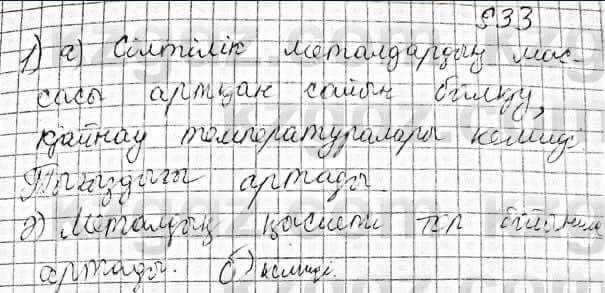 §33
1) а) Сілтілік металдардың мас-
сасы артқан сайын балқу,
қайнау температуралары кемиді
Тығыздығы артады
ә) Металдық қасиеті топ бойынша
артады. б) кемиді.